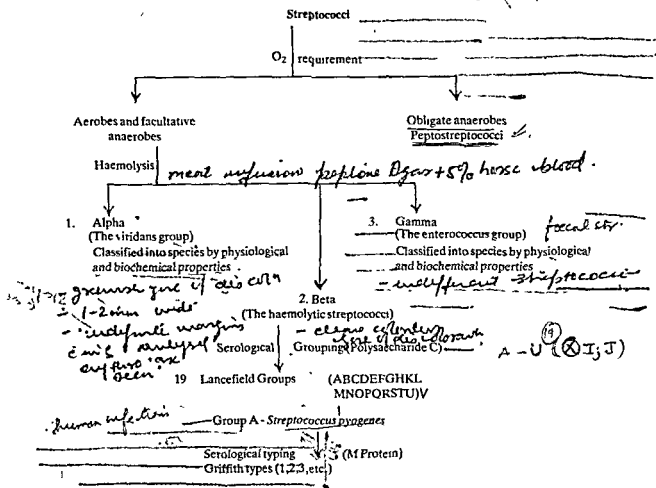 Streptococci
O₂ requirement
Aerobes and facultative
anaerobes
Obligate anaerobes
Peptostreptococci
Haemolysis
meat infusion peptone Agar + 5% horse blood.
1. Alpha
(The viridans group)
Classified into species by physiological
and biochemical properties
greenish zone of discoln
- 1-2mm wide
- indefinite margins
seen
3. Gamma
(The enterococcus group)
faecal str.
Classified into species by physiological
and biochemical properties
- indifferent streptococci
2. Beta
(The haemolytic streptococci)
Serological Grouping (Polysaccharide C)
A - U (X I, J)
19
19 Lancefield Groups (ABCDEFGHKL
MNOPQRSTU)V
human infection
Group A - Streptococcus pyogenes
Serological typing (M Protein)
Griffith types (1,2,3, etc.)